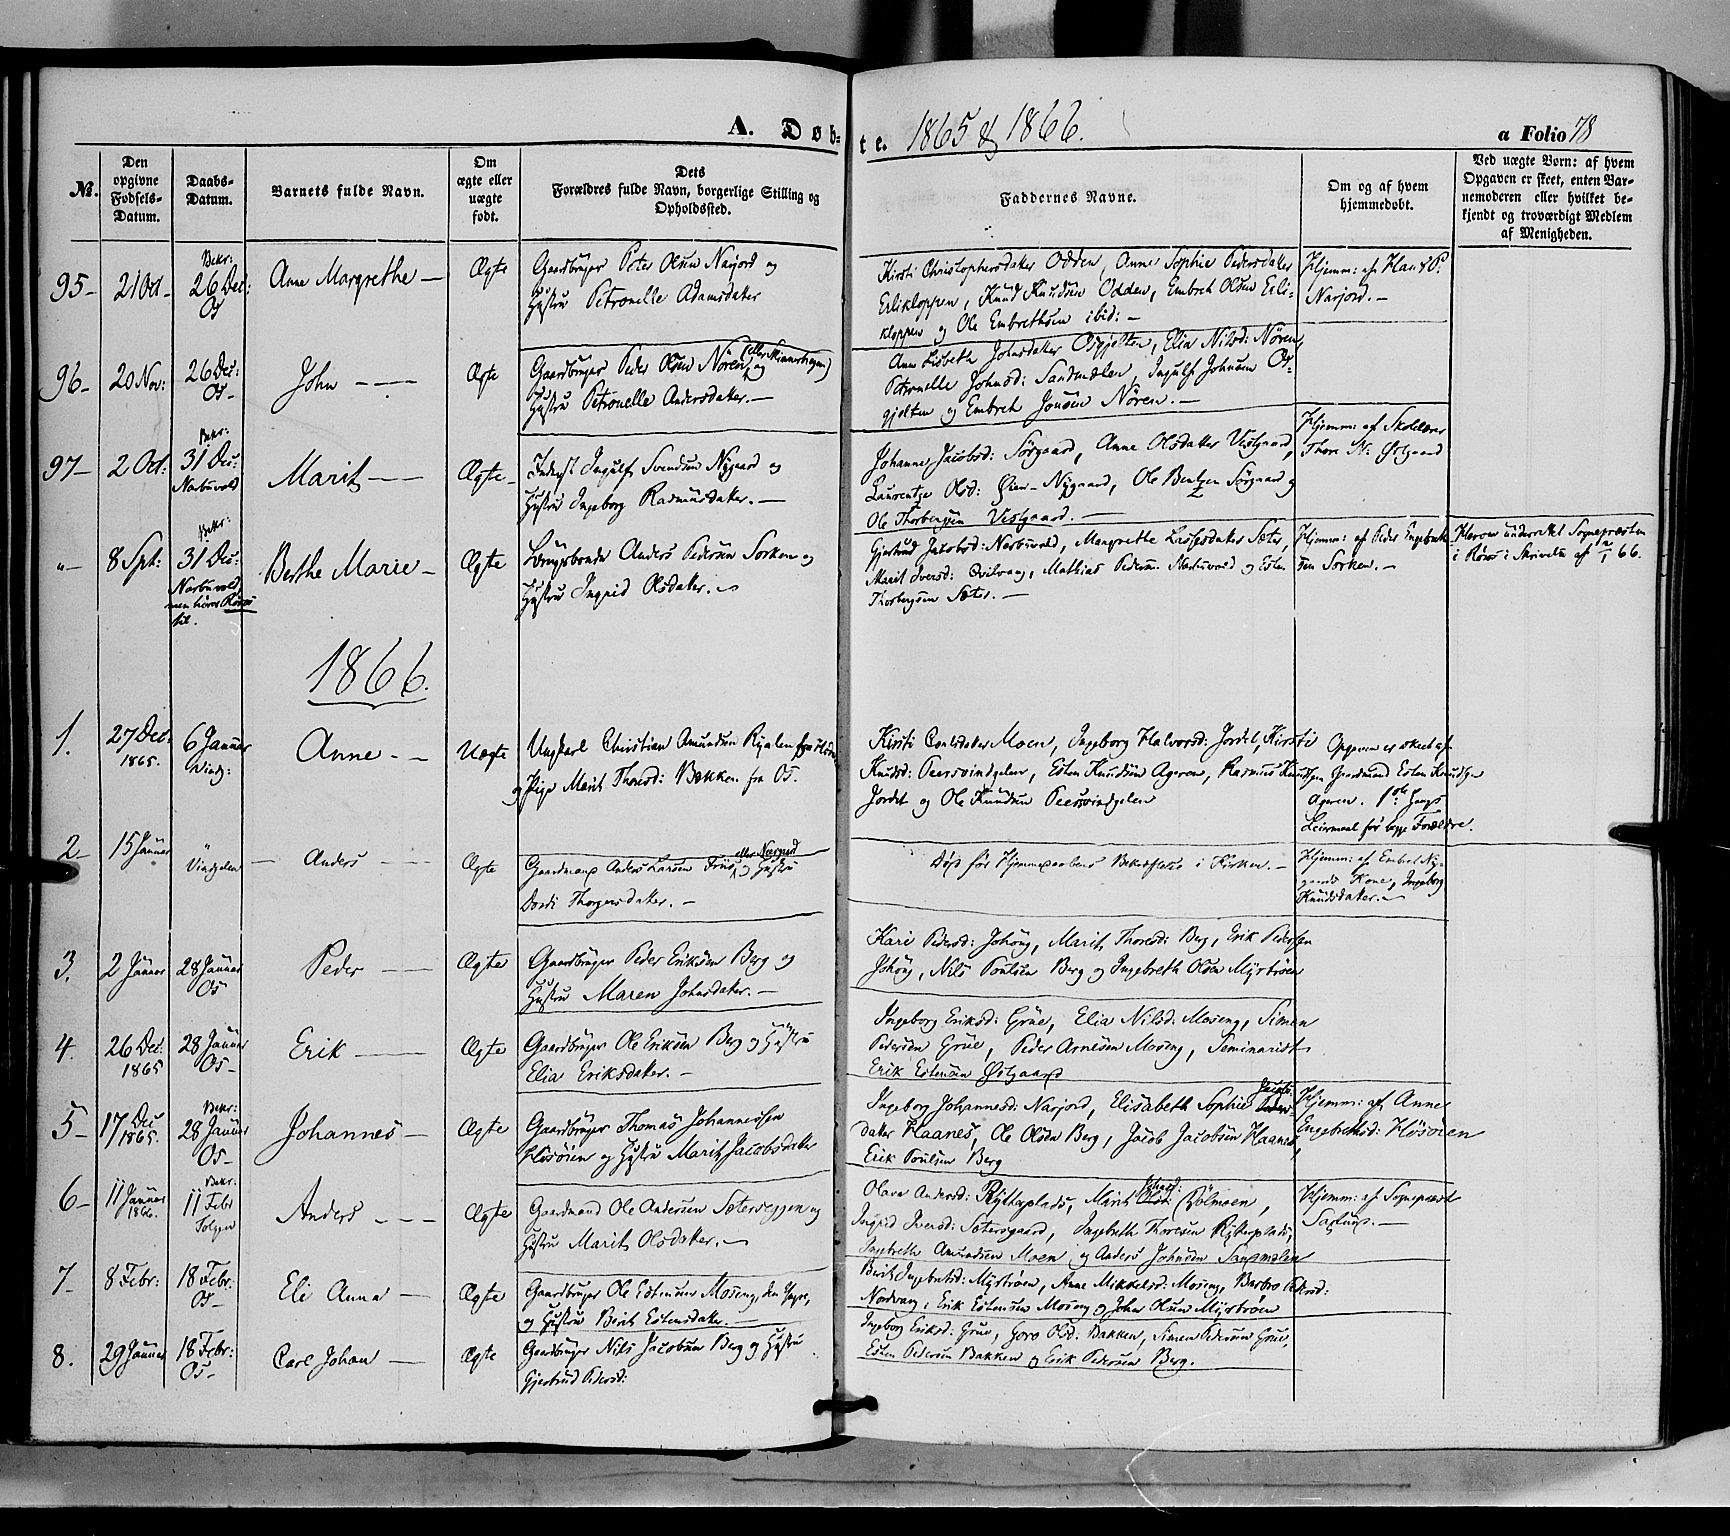 A. Døb-
te. 1865 & 1866.
a Folio 78
No.
Den opgivne Fødsels-Datum.
Daabs-Datum.
Barnets fulde Navn.
Om ægte eller uægte født.
Dets Forældres fulde Navn, borgerlige Stilling og Opholdssted.
Faddernes Navne.
Om og af hvem hjemmedøbt.
Ved uægte Børn: af hvem Opgaven er skeet, enten Barnemoderen eller hvilket bekjendt og troværdigt Medlem af Menigheden.
95- 21 Oct- Bekr: 26 Dec: Os Anne Margrethe- Ægte
Gaardbruger Peter Olsen Narjord og
Hustru Petronelle Adamsdatter
Kirsti Christophersdatter Odden, Anne Sophie Pedersdatter
Erlikloppen, Knud Knudsen Odden, Embret Olsen Erli-
kloppen og Ole Embrethsen ibid:-
Hjemm: af Hans P.
Narjord.-
96- 20 Nov: 26 Dec: Os- John Ægte
Gaardbruger Peder Olsen Nören og
Hustru Petronelle Andersdatter.-
Ane Lisbeth Johnsdatter Osgjelten, Elia Nilsd: Nören,
Petronelle Johnsd: Sandmælen, Ingulf Johnsen Os-
gjelten og Embret Jonsen Nören.-
97- 2 Oct: Bekr: 31 Dec: Narbuvold Marit Ægte
Inderst Ingulf Svendsen Nygaard og
Hustru Ingeborg Rasmusdatter.-
Johanne Jacobsd: Sörgaard, Anne Olsdatter Vestgaard,
Laurentze Olsd: Øien-Nygaard, Ole Bentzen Sörgaard og
Ole Thorbergsen Vestgaard.-
Hjemm: af Skolelærer
Thore N: Østgaard
"- 8 Spt: Bekr: 31 Dec: Narbuvold men hörer Röros til. Berthe Marie- Ægte
Anders Pedersen Sorken og
Hustru Ingrid Olsdatter.
Gjertrud Jacobsd: Narbuvold, Margrethe Sæter,
Marit Iversd: Qvilvang, Mathias Pedersen Narbuvold og Esten
Thorbergsen Sæter.-
Hjemm: af Peder Ingebrigt-
sen Sorken.-
Herom underrettet Sognepræsten
i Röros i Skrivelse af 66.
1866.
1. 27 Dec. 1865. 6 Januar Vindg: Anne Uægte
Ungkarl Christian Amundsen Ryalen fra
og Pige Marit Thoresd: Bækken fra Os.
Kirsti Carlsdatter Moen, Ingeborg Halvorsd: Jordet, Kirsti
Knudsd: Peersvindgelen, Esten Knudsen Ageren, Rasmus Knudsen
Jordet og Ole Knudsen Peersvindgelen
Opgaven er skeet af
Gaardmand Esten Knudsen
Ageren. 1ste Gangs
Leiermaal for begge Forældre.
2- 15 Januar " Vindgelen Anders Ægte
Gaardmand Anders Larsen eller Norgard og Hustru
Dordi Thorgersdatter.-
Död för Hjemmedaabens Bekræftelse i Kirken.-
Hjemm: af Embret Ny-
gaards Kone, Ingeborg
Knudsdatter.
3. 2 Januar 28 Januar Os Peder Ægte
Gaardbruger Peder Eriksen Berg og
Hustru Maren Johnsdatter.-
Kari Pedersd: Johöug, Marit Thoresd: Berg, Erik Pedersen
Johöug, Nils Poulsen Berg og Ingebreth Olsen Myrbröen
4. 26 Dec: 1865 28 Januar Os- Erik Ægte
Gaardbruger Ole Eriksen Berg og Hustru
Elia Eriksdatter.-
Ingeborg Eriksd: Grue, Elia Nilsd: Moseng, Simen
Pedersen Grue, Peder Arnesen Moseng, Seminarist
Erik Estensen Østgaard
5- 17 Dec 1865. Bekr: 28 Januar Os- Johannes- Ægte
Gaardbruger Thomas Johannessen
Hösöien og Hustru Marit Jacobsdatter
Ingeborg Johannesd: Narjord, Elisabeth Sophie Jacobs-
datter Haanes, Ole Olsen Berg, Jacob Jacobsen Haanes,
Erik Poulsen Berg
Hjemm: af Anne
Engebrethsd: Hösöien
6- 11 Januar 1866. Bekr: 11 Febr Tolgen Anders Ægte
Gaardmand Ole Andersen Sætereggen og
Hustru Marit Olsdatter.
Olava Andersd: Rytterplads, Marit Dölmoen,
Ingrid Iversd: Sætersgaard, Ingebreth Thoresen Rytterplads,
Ingebreth Amundsen Moen og Anders Johnsen Sandmælen
Hjemm: af Sognepræst
7- 8 Febr: 18 Febr: Os- Eli Anna Ægte
Gaardbruger Ole Estensen Moseng, den Yngre,
og Hustru Berit Estensdatter.-
Berit Ingebretsd: Myrbröen, Anne Mikkelsd: Moseng, Barbro
Nordvang, Erik Estensen Moseng og Johan Olsen Myrbröen
8. 29 Januar 18 Febr: Os- Carl Johan Ægte
Gaardbruger Nils Jacobsen Berg og Hustru
Gjertrud Pedersd:
Ingeborg Eriksd: Grue, Goro Olsd: Bakken, Simen Pedersen Grue,
Esten Pedersen Bakken og Erik Pedersen Berg.